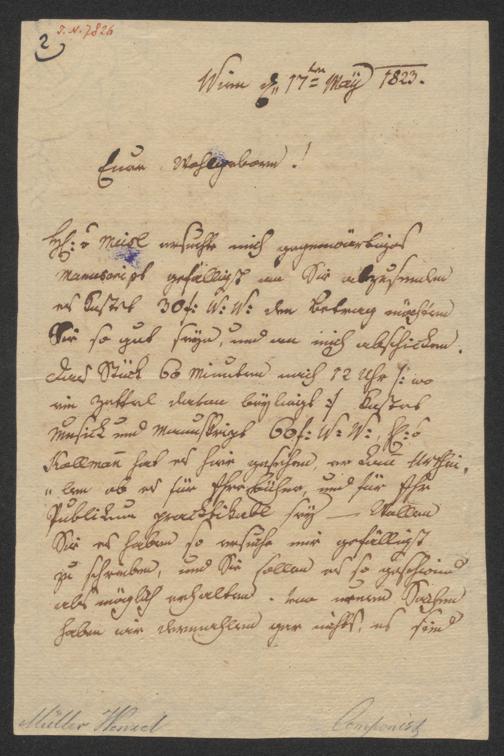 2
I. N. 7826
Wien d. 17ten May 1823.
Euer Wohlgeborn!
H: v Meisl ersuchte mich gegenwärtiges
Manuscript gefälligst an Sie abzusenden
es kostet 30f: W: W: den Betrag möchten
Sie so gut seyn, und an mich abschicken.
Das Stück 60 Minuten nach 12 Uhr /: wo
ein Zettel daran beyliegt :/ kostet
Musick und Manuskript 60f: W: W:, H: v
Kollmañ hat es hier gesehen, er kañ Urthei,
"len ob es für Ihre Bühne, und für Ihr
Publikum practikabl sey — Wollen
Sie es haben so ersuche mir gefälligst
zu schreiben, und Sie sollen es so geschwind
als möglich erhalten. von neuen Sachen
haben wir dermahlen gar nichts, es sind
Müller Wenzel
Componist